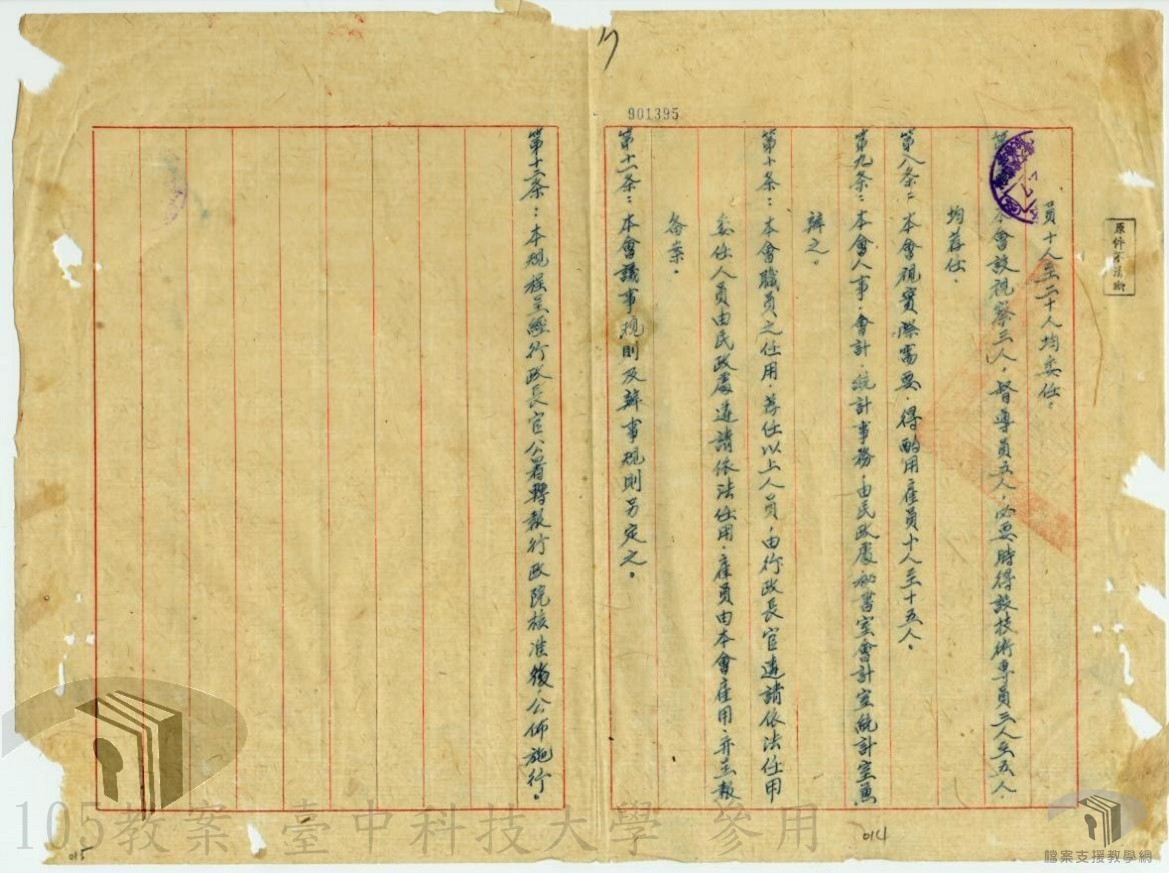 901395
員十人至二十人均委任。
第 本會設視察三人，督導員五人，必要時得設技術專員三人至五人，
均荐任。
第八条：本會視實際需要，得酌用雇員十人至十五人。
第九条：本會人事，會計，統計事務，由民政處秘書室會計室統計室兼
辦之。
第十条：本會職員之任用，荐任以上人員，由行政長官遴請依法任用
委任人員由民政處遴請依法任用，雇員由本會雇用，并呈報
备案。
第十一条：本會議事規則及辦事規則另定之。
第十二条：本規程呈經行政長官公署轉報行政院核准後，公佈施行。
014
015
105教案 臺中科技大學 參用
檔案支援教學網